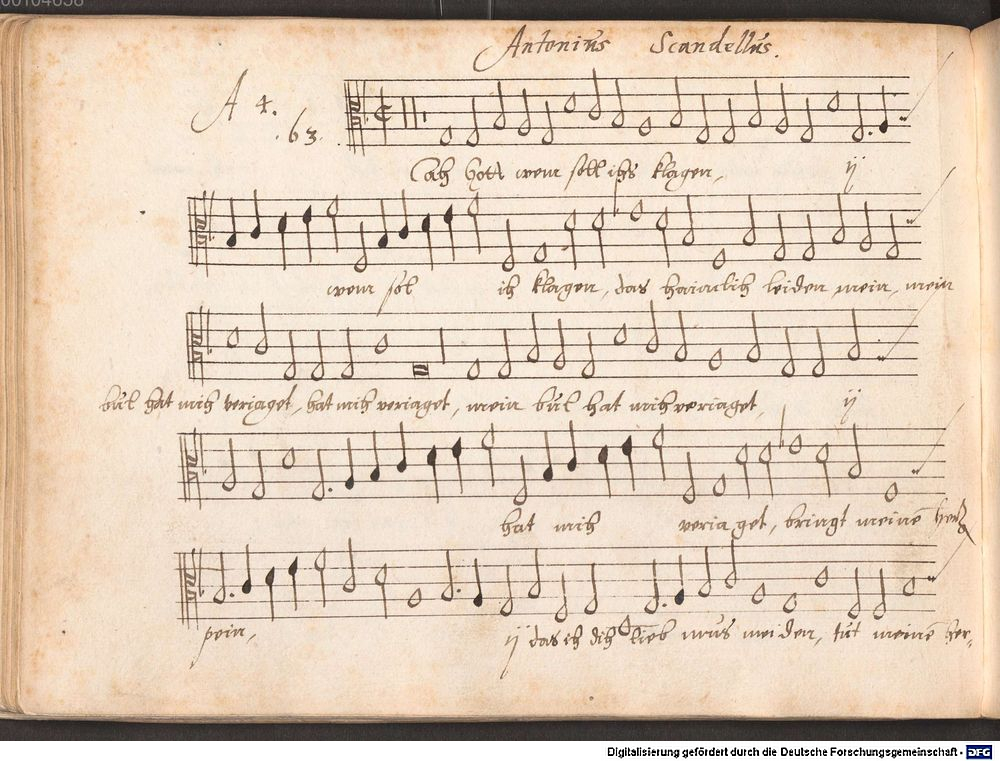 00104638
Antonius Scandellus.
A 4.
63.
Ach Gott wem soll ichs klagen, ij
wem sol ich klagen, das haimlich leiden mein, mein
bul hat mich veriaget, hat mich veriaget, mein bul hat mich veriaget, ij
hat mich veriaget, bringt meinē hertz
pein, ij das ich dich lieb mus meiden, tut meinē her,
Digitalisierung gefördert durch die Deutsche Forschungsgemeinschaft - DFG